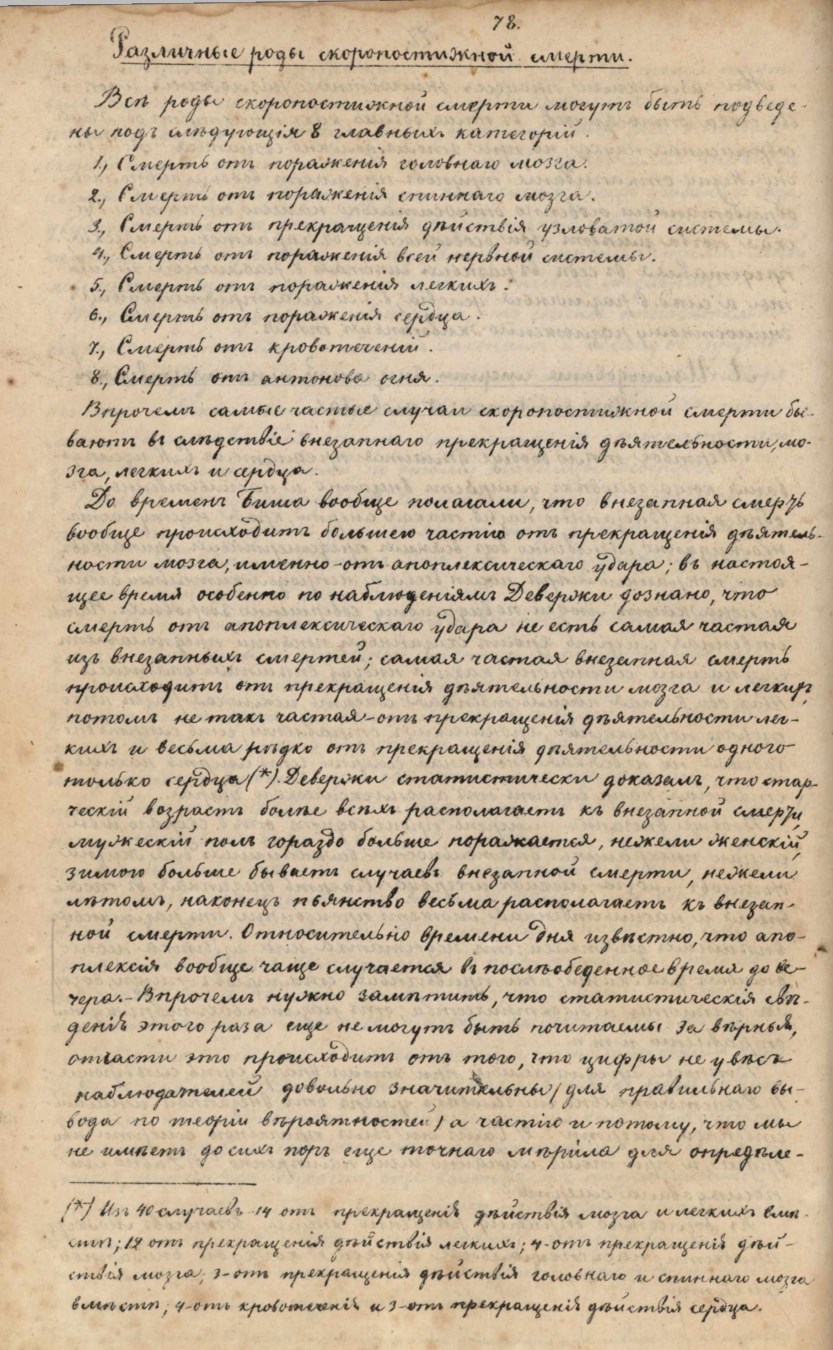 78.
Различные роды скоропостижной смерти.
Всѣ роды скоропостижной смерти могутъ быть подведе-
ны подъ слѣдующія 8 главныхъ категорій.
1., Смерть отъ пораженія головнаго мозга.
2., Смерть отъ пораженія спиннаго мозга.
3., Смерть отъ прекращенія дѣйствія узловатой системы.
4., Смерть отъ пораженія всей нервной системы.
5., Смерть отъ пораженія легкихъ.
6., Смерть отъ пораженія сердца.
7., Смерть отъ кровотеченій.
8., Смерть отъ антонова огня.
Впрочемъ самые частые случаи скоропостижной смерти бы-
ваютъ въ слѣдствіе внезапнаго прекращенія дѣятельности, мо-
зга, легкихъ и сердца.
До временъ Биша вообще полагали, что внезапная смерть
вообще происходитъ большею частію отъ прекращенія дѣятель-
ности мозга, именно-отъ апоплексическаго удара; въ настоя-
щее время особенно по наблюденіямъ Девержи дознано, что
смерть отъ апоплексическаго удара не есть самая частая
изъ внезапныхъ смертей; самая частая внезапная смерть
происходитъ отъ прекращенія дѣятельности мозга и легкихъ,
потомъ не такъ частая-отъ прекращенія дѣятельности лег-
кихъ и весьма рѣдко отъ прекращенія дѣятельности одного
только сердца (*). Девержи статистически доказалъ, что стар-
ческій возрастъ болѣе всѣхъ располагаетъ къ внезапной смерти,
мужескій полъ гораздо больше поражается, нежели женскій,
зимою больше бываетъ случаевъ внезапной смерти, нежели
лѣтомъ, наконецъ пьянство весьма располагаетъ къ внезап-
ной смерти. Относительно времени дня извѣстно, что апо-
плексія вообще чаще случается въ послѣобеденное время до ве-
чера.- Впрочемъ нужно замѣтить, что статистическія свѣ-
денія этого раза еще не могутъ быть почитаемы за вѣрныя,
отчасти это происходитъ отъ того, что цифры не у всѣхъ
наблюдателей довольно значительны (для правильнаго вы-
вода по теоріи вѣроятностей) а частію и потому, что мы
не имѣемъ до сихъ поръ еще точнаго мѣрила для опредѣле-
(*) Изъ 40 случаевъ 14 отъ прекращенія дѣйствія мозга и легкихъ вмѣ-
стѣ; 12 отъ прекращенія дѣйствія легкихъ; 4-отъ прекращенія дѣй-
ствія мозга; 3-отъ прекращенія дѣйствія головнаго и спиннаго мозга
вмѣстѣ; 4-отъ кровотеченія и 3-отъ прекращенія дѣйствія сердца.